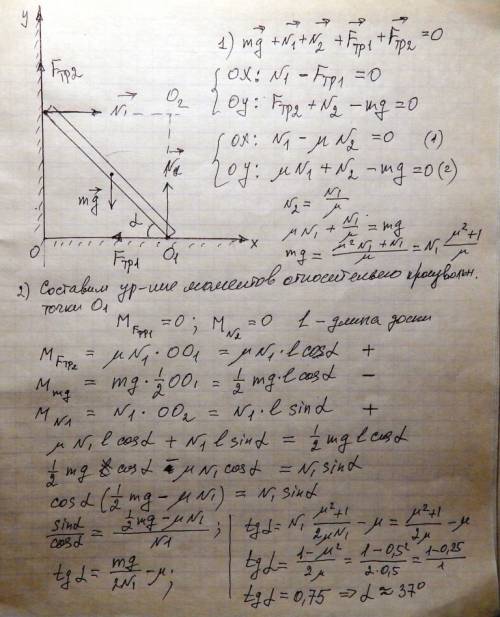 y
Fтр2
N₁
O₂
N₂
mg
α
O
Fтр1
O₁
x
1) mg + N₁ + N₂ + Fтр1 + Fтр2 = 0
OX: N₁ - Fтр1 = 0
OY: Fтр2 + N₂ - mg = 0
OX: N₁ - μN₂ = 0 (1)
OY: μN₁ + N₂ - mg = 0 (2)
N₂ = N₁/μ
μN₁ + N₁/μ = mg
mg = (μ²N₁ + N₁)/μ = N₁ (μ²+1)/μ
2) Составим ур-ние моментов относительно произвольн.
точки O₁
MFтр1 = 0; MN₂ = 0 l - длина доски
MFтр2 = μN₁ · OO₁ = μN₁ · l cosα +
Mmg = mg · ½OO₁ = ½ mg · l cosα -
MN1 = N₁ · OO₂ = N₁ · l sinα +
μN₁ l cosα + N₁ l sinα = ½ mg l cosα
½ mg cosα - μN₁ cosα = N₁ sinα
cosα (½ mg - μN₁) = N₁ sinα
sinα/cosα = (½ mg - μN₁)/N1;
tgα = mg/2N₁ - μ;
tgα = N₁ (μ²+1)/2μN₁ - μ = (μ²+1)/2μ - μ
tgα = (1-μ²)/2μ = (1-0,5²)/2·0,5 = (1-0,25)/1
tgα = 0,75 ⇒ α ≈ 37°